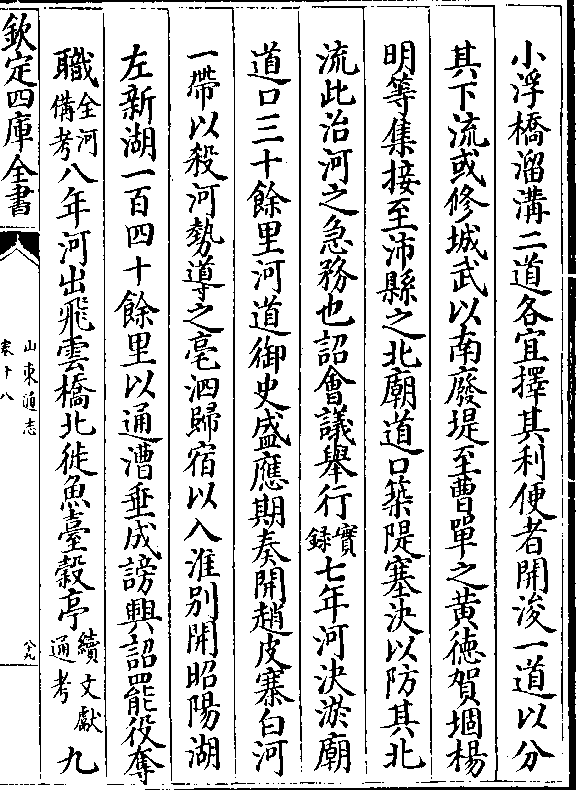 小浮橋溜溝二道各宜擇其利便者開浚一道以分
其下流或修城武以南廢堤至曹單之黄徳賀堌楊
明等集接至沛縣之北廟道口築隄塞決以防其北
流此治河之急務也詔會議舉行實録七年河決淤廟
道口三十餘里河道御史盛應期奏開趙皮寨白河
一帶以殺河勢導之亳泗歸宿以入淮别開昭陽湖
左新湖一百四十餘里以通漕垂成謗興詔罷役奪
職全河備考八年河出飛雲橋北徙魚臺穀亭續文獻通考九
欽定四庫全書
山東通志
卷十八